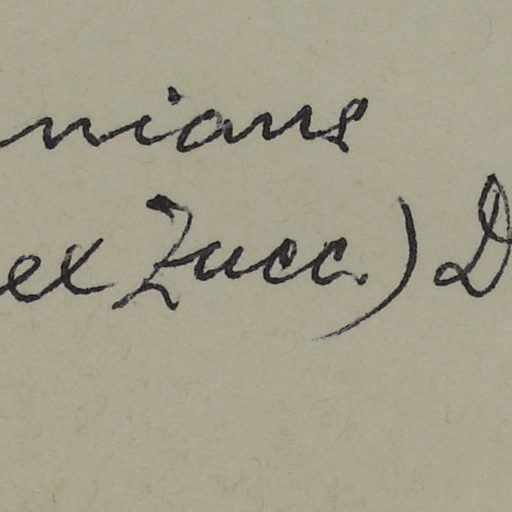 nians
ex Zucc.) D